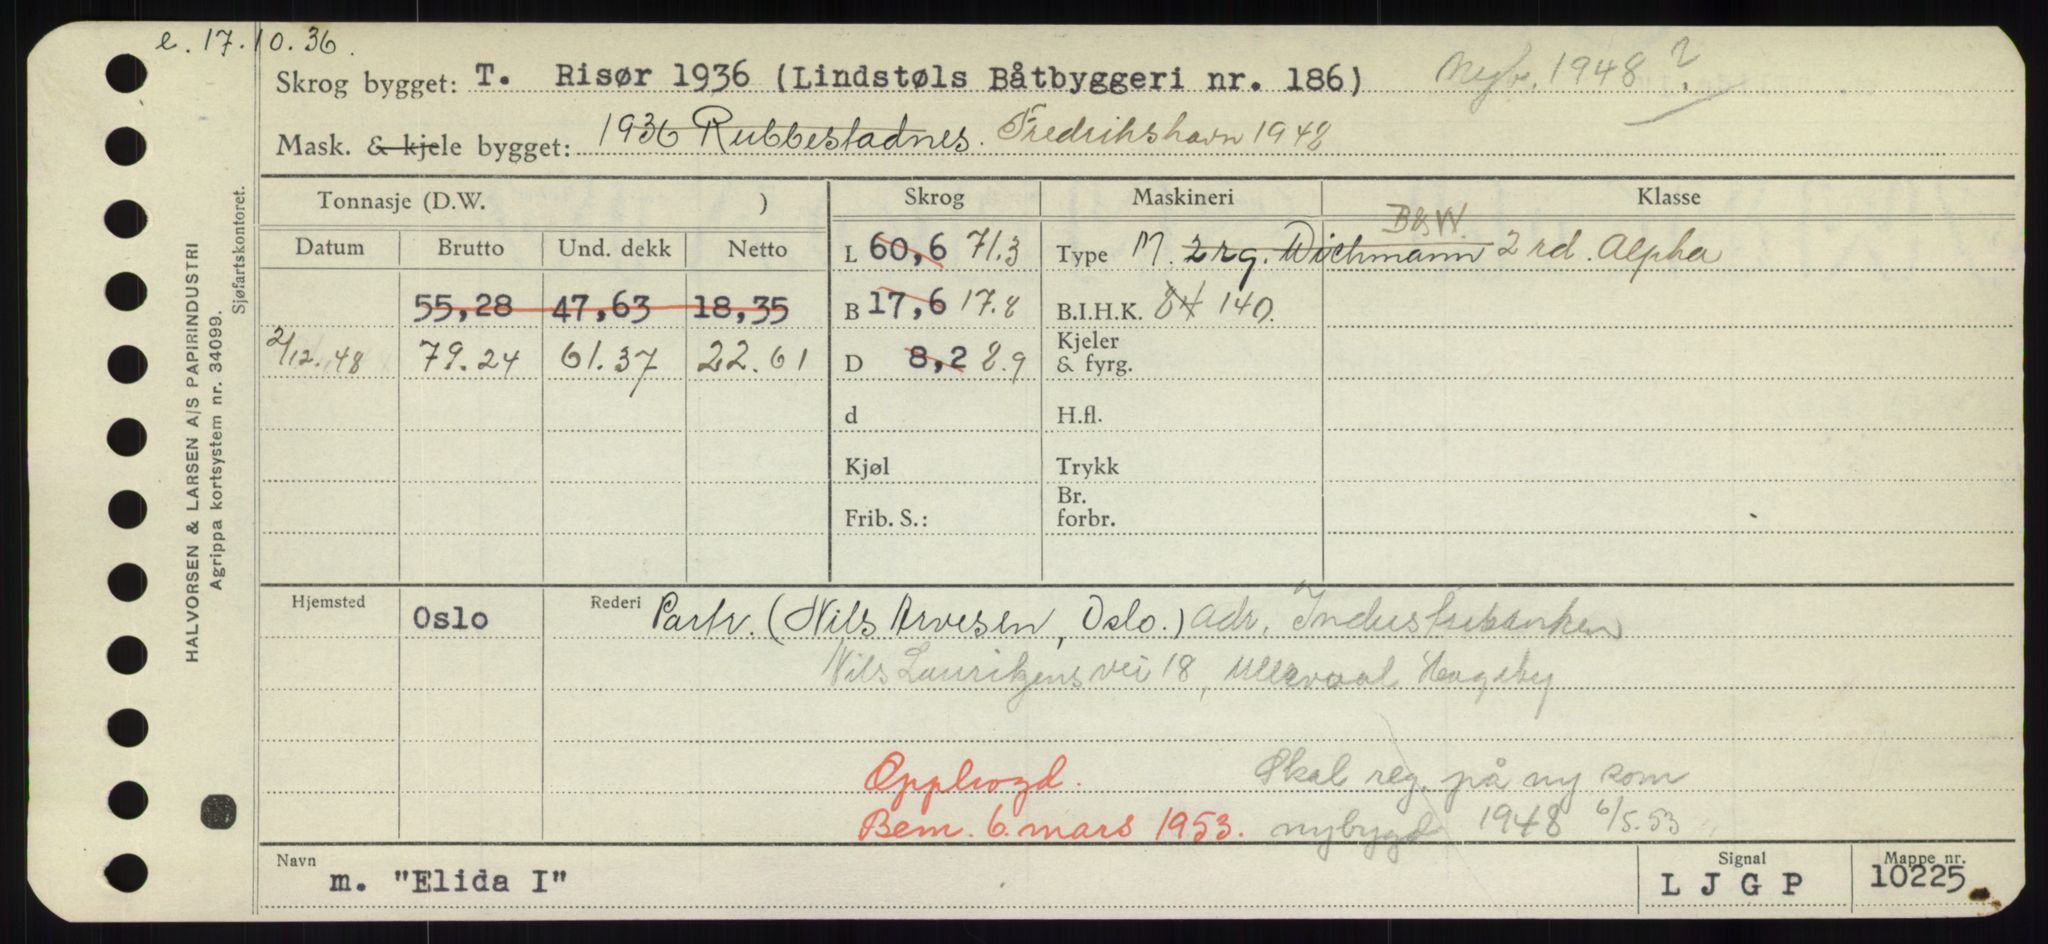 e. 17.10.36.
Skrog bygget: T. Risør 1936 (Lindstøls Båtbyggeri nr. 186) Nyb. 1948?
Mask. & kjele bygget: 1936 Rubbestadnes. Fredrikshavn 1948
Tonnasje (D.W. ) Skrog Maskineri Klasse
Datum Brutto Und. dekk Netto
L 60,6 71.3 Type M. 2 rg. Wichmann B&W. 2 rd. Alpha
55,28 47,63 18,35 B 17,6 17.8 B.I.H.K. 84 140.
2/12.48 79.24 61.37 22.61 D 8,2 8.9 Kjeler & fyrg.
d H.fl.
Kjøl Trykk
Frib. S.: Br. forbr.
Hjemsted Oslo Rederi Partr. (Nils Arvesen, Oslo.) Adr. Industribanken
Nils Lauritzens vei 18, Ullevaal Hageby
Opphogd. Skal reg. på ny som
Bem. 6. mars 1953. nybygd 1948 6/5.53
Navn m. "Elida I" Signal L J G P Mappe nr. 10225
HALVORSEN & LARSEN A/S PAPIRINDUSTRI
Agrippa kortsystem nr. 34099.
Sjøfartskontoret.